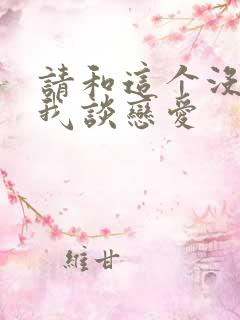 請和這个沒
我談戀愛
維甘